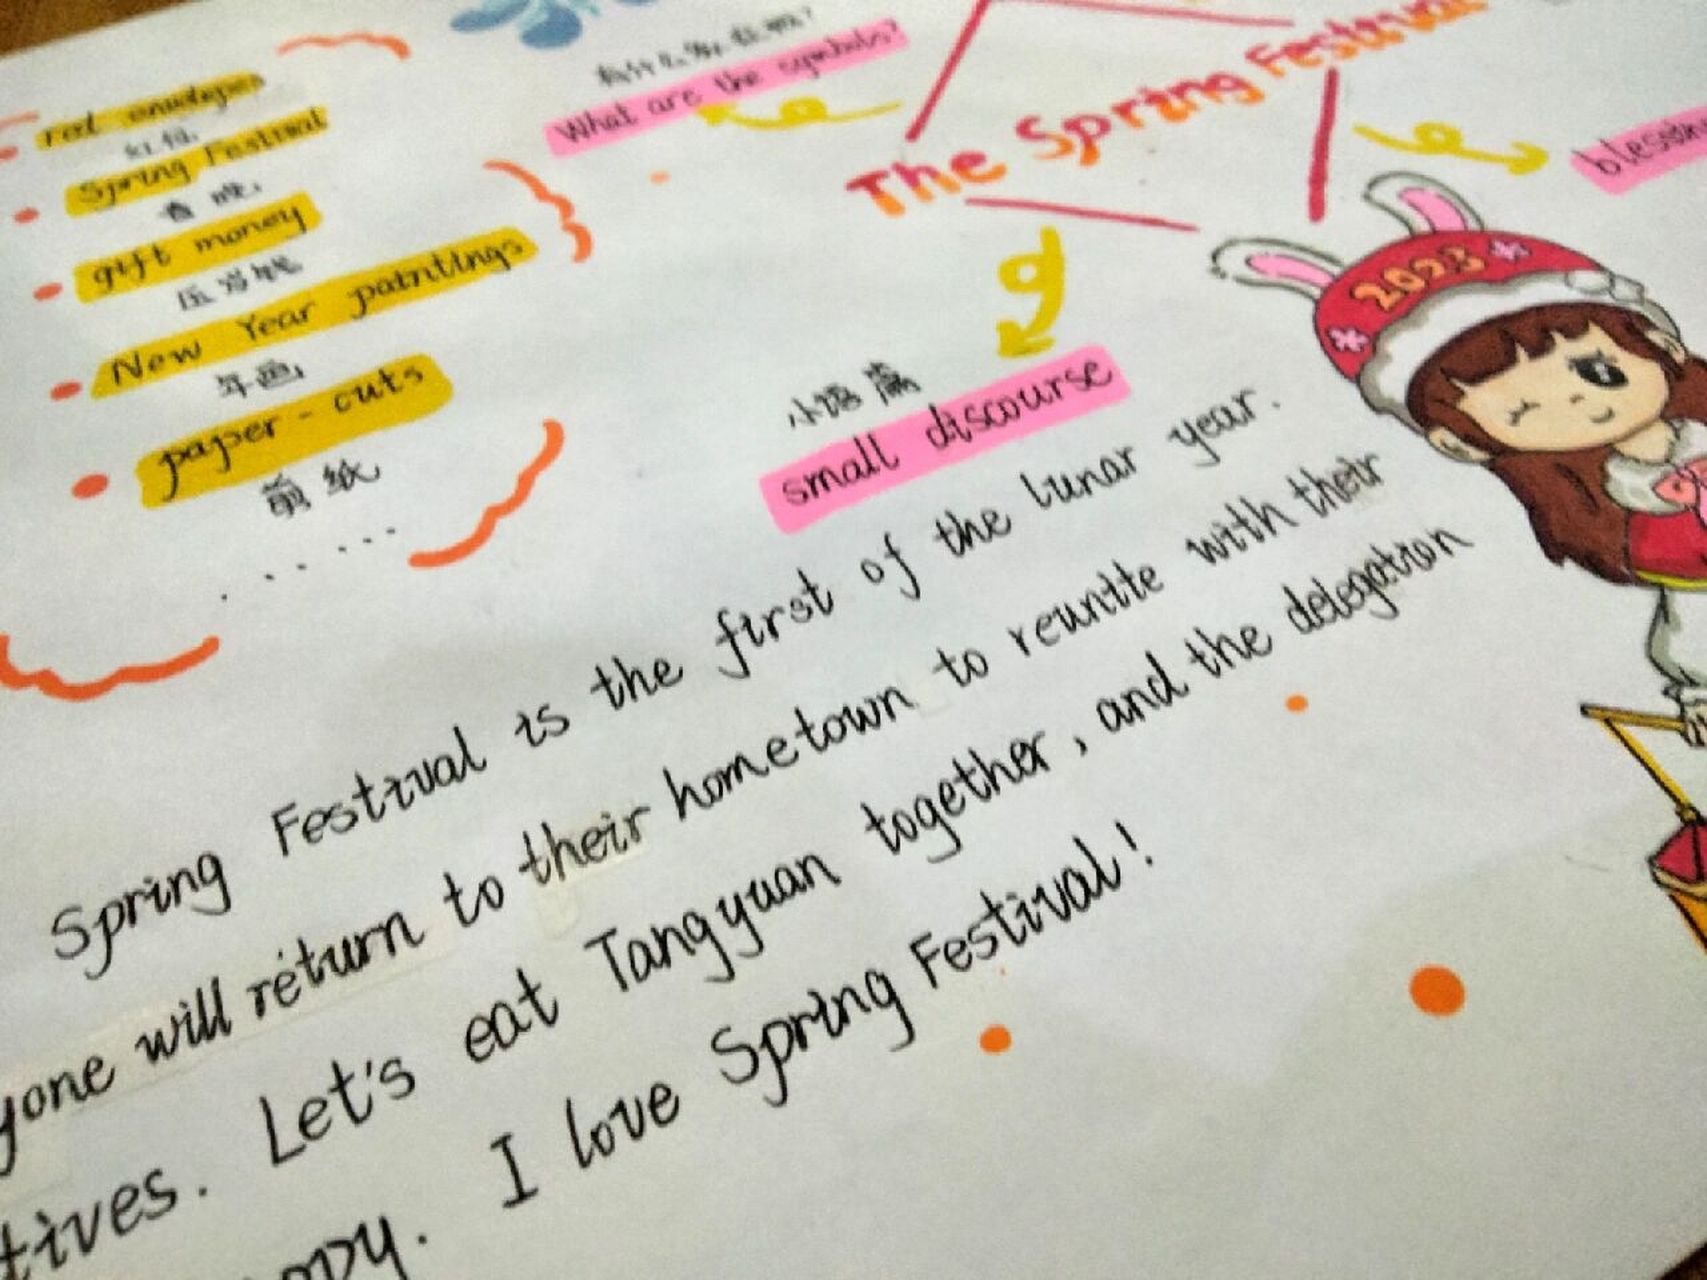 red envelopes
红包
Spring Festival
春晚
gift money
压岁钱
New Year paintings
年画
paper-cuts
剪纸
......
有什么象征呢?
What are the symbols?
The Spring Festival
2023
小语篇
small discourse
Spring Festival is the first of the lunar year.
yone will return to their hometown to reunite with their
tives. Let's eat Tangyuan together, and the delegation
ppy. I love Spring Festival!